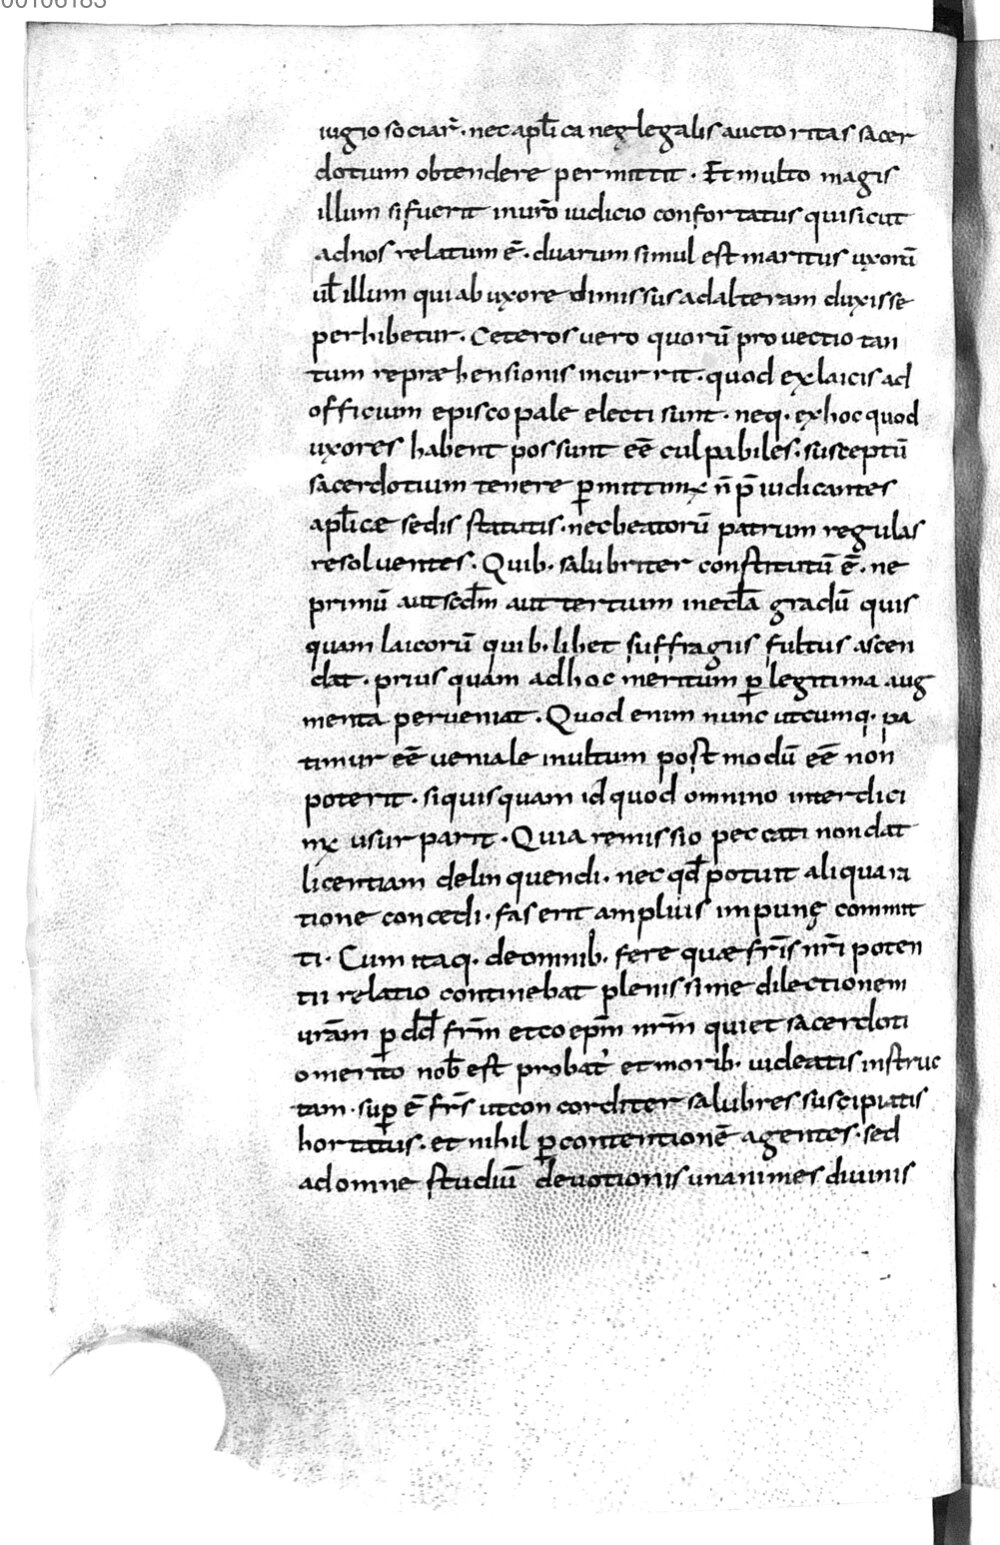 00106183
iugio sociar̃. nec apl̃ica neq; legalis auctoritas sacer
dotium obtendere permittit. Et multo magis
illum si fuerit in uro᷑ iudicio confortatus qui sicut
ad nos relatum ē. duarum simul est maritus uxorū
ul̃ illum qui ab uxore dimissus ad alteram duxisse
perhibetur. Ceteros uero quorū prouectio tan
tum repræhensionis incurrit. quod ex laicis ad
officium episcopale electi sunt. neq. ex hoc quod
uxores habent possunt eē culpabiles. susceptū
sacerdotium tenere ꝑmittimꝰ ñ p̄iudicantes
apl̃icæ sedis statutis. nec beatorū patrum regulas
resoluentes. Quib. salubriter constitutū ē. ne
primū aut scd̄m aut tertium in ecl̃a gradū quis
quam laicorū quib.libet suffragiis fultus ascen
dat. prius quam ad hoc meritum ꝑ legitima aug
menta perueniat. Quod enim nunc utcumq. pa
timur eē ueniale inultum postmodū eē non
poterit. si quisquam id quod omnino interdici
mꝰ usurparit. Quia remissio peccati non dat
licentiam delinquendi. nec qd̄ potuit aliqua ra
tione concedi. fas erit amplius impunę commit
ti. Cum itaq. de omnib. fere quæ fr̄is nr̄i poten
tii relatio continebat plenissime dilectionem
urām ꝑ dd̄ fr̄m et coepm̄ nr̄m qui et sacerdoti
o merito nob̄ est probat᷑ et morib. uideatis instruc
tam. suꝑ ē fr̄s ut concorditer salubres suscipiatis
hortatus. et nihil ꝑ contentionē agentes. sed
ad omne studiū deuotionis unanimes diuinis